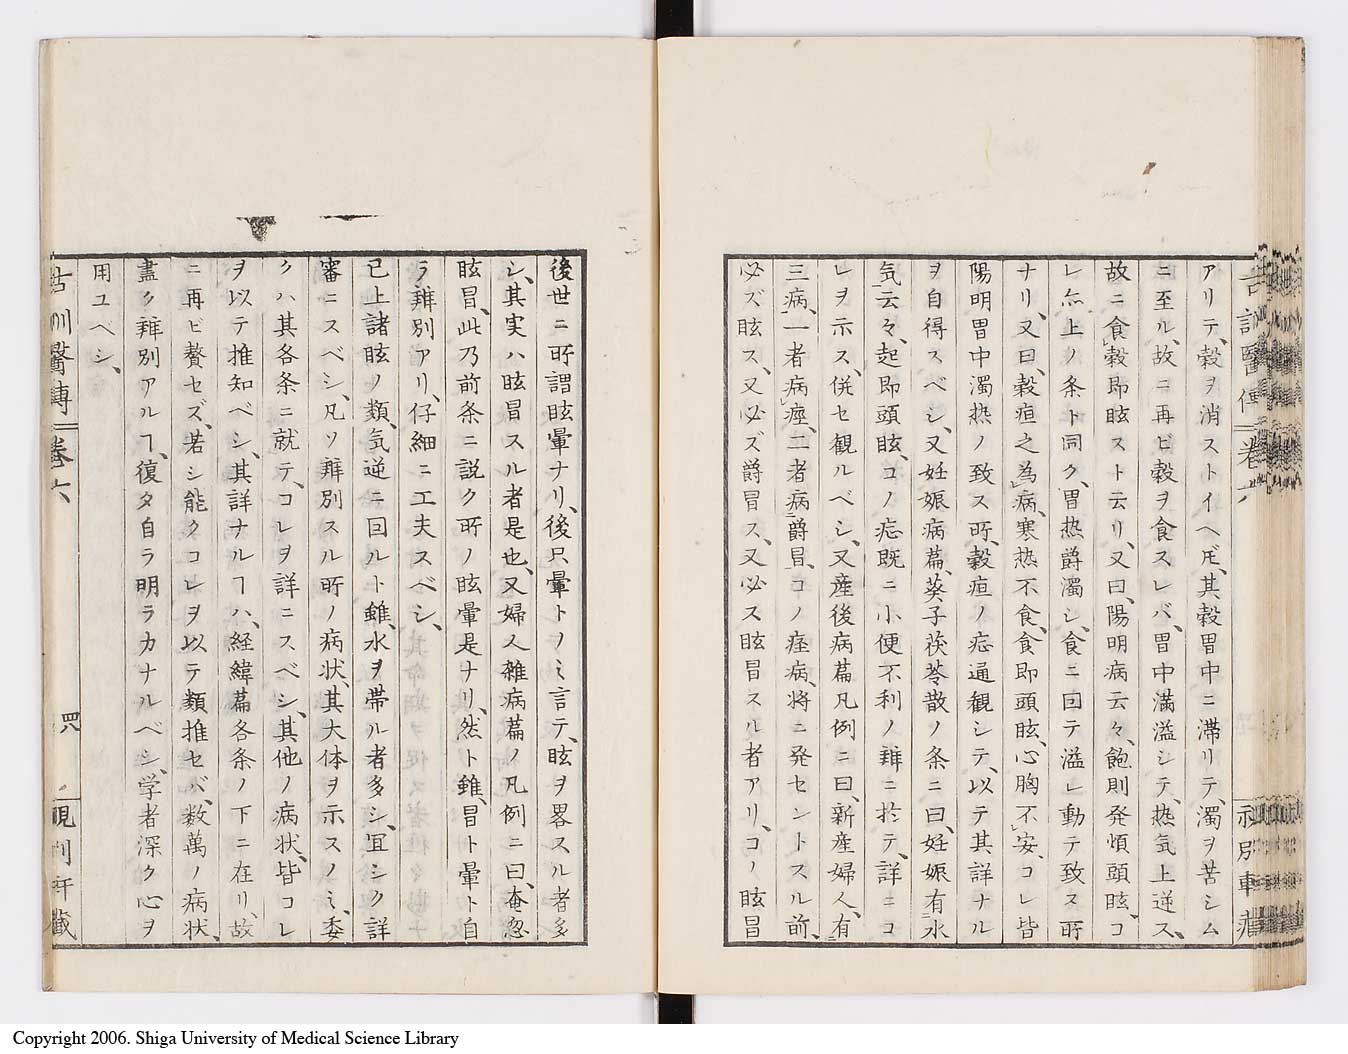 アリテ、穀ヲ消ストイヘ𪜈、其穀胃中ニ滞リテ、濁ヲ苦シム
ニ至ル、故ニ再ビ穀ヲ食スレバ、胃中満溢シテ、熱気上逆ス、
故ニ食穀即眩スト云リ、又曰、陽明病云々、飽則発煩頭眩、コ
レ亦上ノ条ト同ク、胃熱爵濁シ、食ニ回テ溢レ動テ致ス所
ナリ、又曰、穀疸之為病、寒熱不食、食即頭眩、心胸不安、コレ皆
陽明胃中濁熱ノ致ス所、穀疸ノ㤅通観シテ、以テ其詳ナル
ヲ自得スベシ、又妊娠病篇、葵子茯苓散ノ条ニ曰、妊娠有水
気云々、起即頭眩、コノ㤅既ニ小便不利ノ辨ニ於テ、詳ニコ
レヲ示ス、併セ観ルベシ、又産後病篇凡例ニ曰、新産婦人、有
三病、一者病痙、二者病爵冒、コノ痙病、将ニ発セントスル前、
必ズ眩ス、又必ズ爵冒ス、又必ス眩冒スル者アリ、コノ眩冒
後世ニ所謂眩暈ナリ、後只暈トノミ言テ、眩ヲ畧スル者多
シ、其実ハ眩冒スル者是也、又婦人雑病篇ノ凡例ニ曰、奄忽
眩冒、此乃前条ニ説ク所ノ眩暈是ナリ、然ト雖、冒ト暈ト自
ラ辨別アリ、仔細ニ工夫スベシ、
已上諸眩ノ類、気逆ニ回ルト雖、水ヲ帯ル者多シ、宜シク詳
審ニスベシ、凡ソ辨別スル所ノ病状、其大体ヲ示スノミ、委
クハ其各条ニ就テ、コレヲ詳ニスベシ、其他ノ病状、皆コレ
ヲ以テ推知ベシ、其詳ナルヿハ、経緯篇各条ノ下ニ在リ、故
ニ再ビ贅セズ、若シ能クコレヲ以テ類推セバ、数萬ノ病状、
盡ク辨別アルヿ、復タ自ラ明ラカナルベシ、学者深ク心ヲ
用ユベシ、
古訓醫傳 巻六 四八
Copyright 2006. Shiga University of Medical Science Library